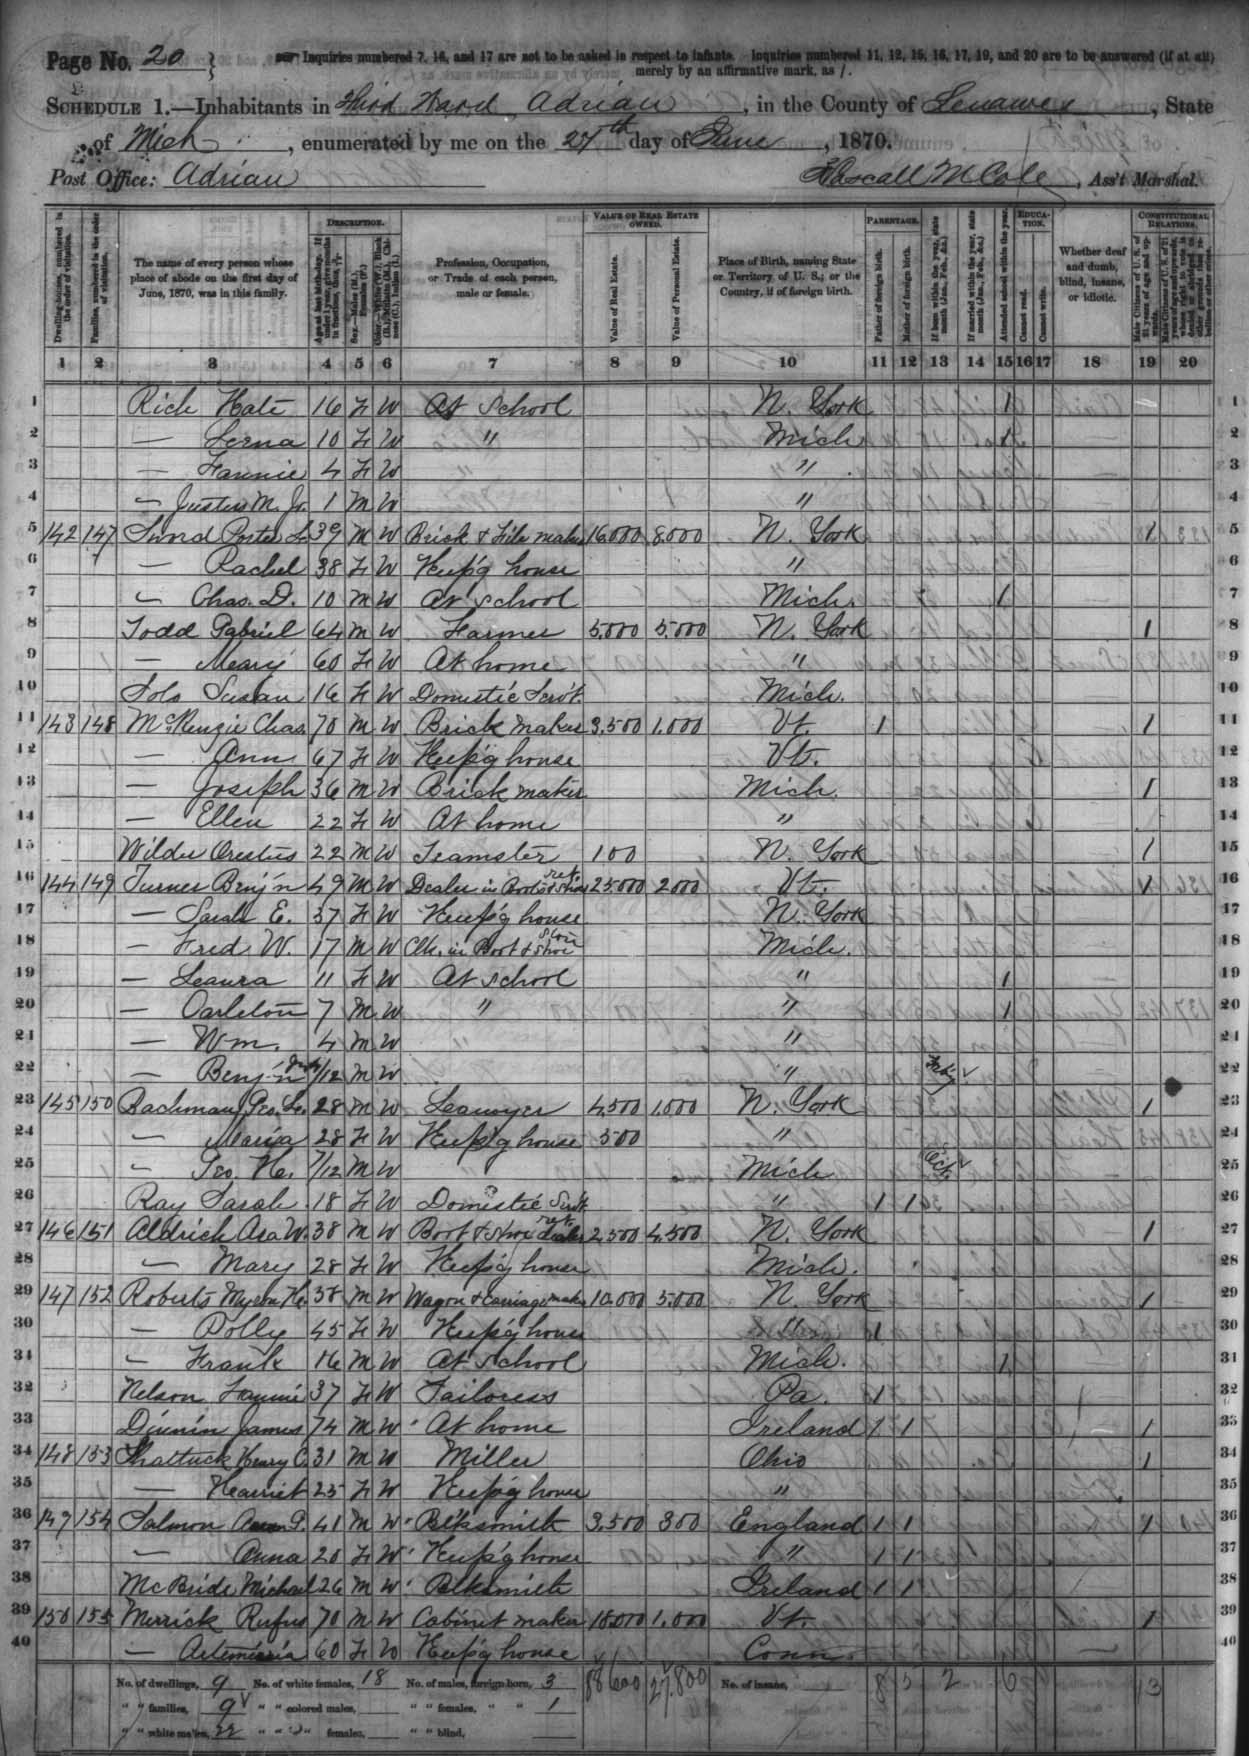 Page No. 20
Inquiries numbered 7, 16, and 17 are not to be asked in respect to infants. Inquiries numbered 11, 12, 15, 16, 17, 19, and 20 are to be answered (if at all) merely by an affirmative mark, as /.
Schedule 1.—Inhabitants in Third Ward Adrian, in the County of Lenawee, State
of Mich, enumerated by me on the 27th day of June, 1870.
Post Office: Adrian M Cole, Ass't Marshal.
Description.
Value of Real Estate owned.
Parentage.
Education.
Constitutional Relations.
Dwelling-houses, numbered in the order of visitation.
Families, numbered in the order of visitation.
The name of every person whose place of abode on the first day of June, 1870, was in this family.
Profession, Occupation, or Trade of each person, male or female.
Value of Real Estate.
Value of Personal Estate.
Place of Birth, naming State or Territory of U. S.; or the Country, if of foreign birth.
Father of foreign birth.
Mother of foreign birth.
If born within the year, state month (Jan., Feb., &c.)
If married within the year, state month (Jan., Feb., &c.)
Attended school within the year.
Cannot read.
Cannot write.
Whether deaf and dumb, blind, insane, or idiotic.
1 2 3 4 5 6 7 8 9 10 11 12 13 14 15 16 17 18 19 20
1 Rich Kate 16 F W At School N. York 1 1
2 — 10 F W " Mich 1 2
3 — Fannie 4 F W " 3
4 — Justus M. Jr. 1 M W " 4
5 142 147 39 M W Brick & Tile maker 16,000 8,000 N. York 1 5
6 — Rachel 38 F W Keep'g house " 6
7 — Chas. D. 10 M W At School Mich. 1 7
8 Todd Gabriel 64 M W Farmer 5,000 5,000 N. York 1 8
9 — Mary 60 F W At home " 9
10 Susan 16 F W Domestic Serv't. Mich. 10
11 143 148 McKenzie Chas. 70 M W Brick maker 3,500 1,000 Vt. 1 1 11
12 — Ann 67 F W Keep'g house Vt. 12
13 — Joseph 36 M W Brick maker Mich. 1 13
14 — Ellen 22 F W At home " 14
15 Wilder Orestus 22 M W Teamster 100 N. York 1 15
16 144 149 Turner Benj'n 49 M W Dealer in Boots & Shoes ret. 25,000 2000 Vt. 1 16
17 — Sarah E. 37 F W Keep'g house N. York 17
18 — Fred W. 17 M W Clk. in Boot & Shoe Store Mich. 18
19 — Leaura 11 F W At School " 1 19
20 — Carleton 7 M W " " 1 20
21 — Wm. 4 M W " 21
22 — Benj'n M W " 22
23 145 150 Geo. L. 28 M W Lawyer 4,500 1,000 N. York 1 23
24 — Maria 28 F W Keep'g house 500 " 24
25 — Geo. H. 7/12 M W Mich Oct. 25
26 Ray Sarah 18 F W Domestic Serv't " 1 1 26
27 146 151 Aldrich Asa W. 38 M W Boot & Shoe dealer ret. 2,500 4,500 N. York 1 27
28 — Mary 28 F W Keep'g house Mich. 28
29 147 152 Roberts Myron H. 38 M W Wagon & Carriage maker 10,000 5,000 N. York 1 29
30 — Polly 45 F W Keep'g house " 1 30
31 — Frank 16 M W At School Mich. 1 31
32 Nelson Fannie 37 F W Tailoress Pa. 1 32
33 James 74 M W At home Ireland 1 1 1 33
34 148 153 Shattuck Henry C. 31 M W Miller Ohio 1 34
35 — Harriet 25 F W Keep'g house " 35
36 149 154 Salmon P. 41 M W Blksmith 3,500 300 England 1 1 1 36
37 — Anna 20 F W Keep'g house " 1 1 37
38 McBride Michael 26 M W Blksmith Ireland 1 1 38
39 150 155 Merrick Rufus 70 M W Cabinet maker 18,000 1,000 Vt. 1 39
40 — Artemisia 60 F W Keep'g house Conn. 40
No. of dwellings, 9 No. of white females, 18 No. of males, foreign born, 3 88,600 27,800 No. of insane, 8 5 2 6 13
" " families, 9 " " colored males, " " females, " " 1
" " white males, 22 " " " females, " " blind,